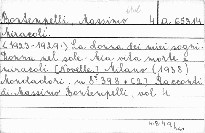 Bontempelli, Massimo 4 a. 65914
Miracoli.
(1923-1929.) La donna dei miei sogni.
Donna nel sole. Mia vita morte e
miracoli [Novelle] Milano (1938)
Mondadori. in 8° 398 + C27 Racconti
di Massimo Bontempelli vol. 4